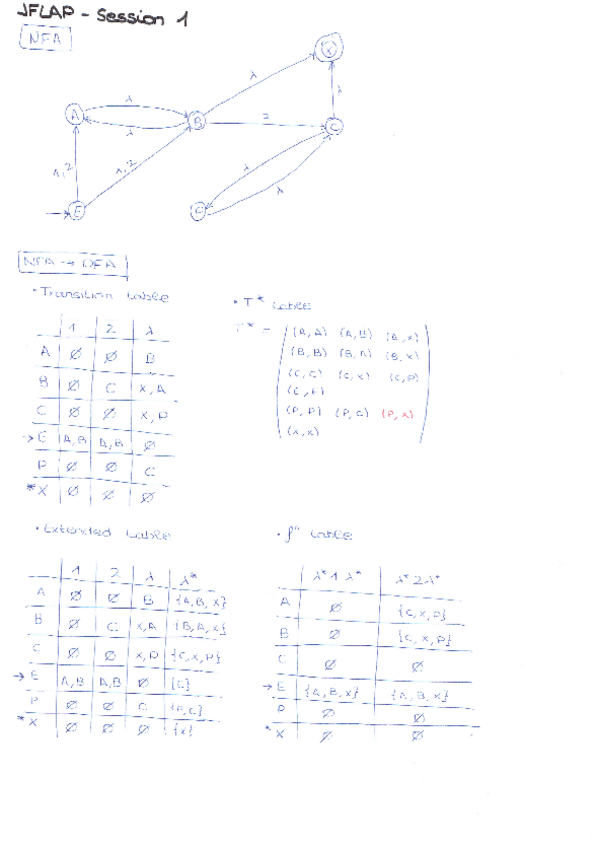 JFLAP - Session 1
NFA
X
λ
λ
A
λ
λ
B
2
C
1,2
1,2
λ
λ
E
P
NFA → DFA
· Transition table
1 2 λ
A ∅ ∅ B
B ∅ C X,A
C ∅ ∅ X,P
→ E A,B A,B ∅
P ∅ ∅ C
* X ∅ ∅ ∅
· T* table
T* =
(A,A) (A,B) (A,X)
(B,B) (B,A) (B,X)
(C,C) (C,X) (C,P)
(E,E)
(P,P) (P,C) (P,X)
(X,X)
· Extended table
1 2 λ λ*
A ∅ ∅ B {A,B,X}
B ∅ C X,A {B,A,X}
C ∅ ∅ X,P {C,X,P}
→ E A,B A,B ∅ {E}
P ∅ ∅ C {P,C}
* X ∅ ∅ ∅ {X}
· f" table
λ* 1 λ* λ* 2 λ*
A ∅ {C,X,P}
B ∅ {C,X,P}
C ∅ ∅
→ E {A,B,X} {A,B,X}
P ∅ ∅
* X ∅ ∅